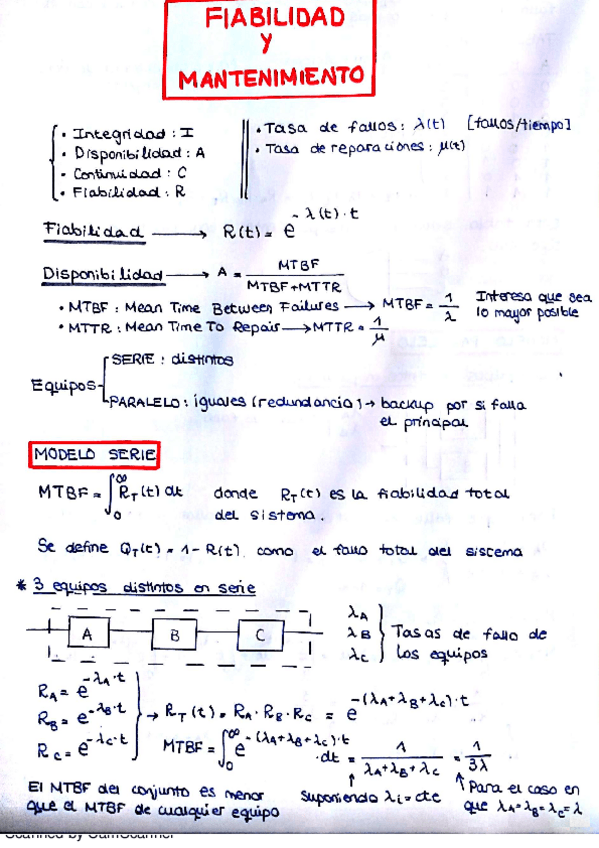 FIABILIDAD
Y
MANTENIMIENTO
• Integridad : I
• Disponibilidad : A
• Continuidad : C
• Fiabilidad : R
• Tasa de fallos : λ(t) [fallos/tiempo]
• Tasa de reparaciones : μ(t)
Fiabilidad → R(t) = e^{-λ(t)·t}
Disponibilidad → A = MTBF / (MTBF+MTTR)
• MTBF : Mean Time Between Failures → MTBF = 1/λ Interesa que sea lo mayor posible
• MTTR : Mean Time To Repair → MTTR = 1/μ
Equipos
SERIE : distintos
PARALELO : iguales (redundancia) → backup por si falla
el principal
MODELO SERIE
MTBF = ∫₀^∞ R_T(t) dt donde R_T(t) es la fiabilidad total
del sistema.
Se define Q_T(t) = 1 - R(t) como el fallo total del sistema
* 3 equipos distintos en serie
A B C
λ_A
λ_B
λ_C
Tasas de fallo de
los equipos
R_A = e^{-λ_A·t}
R_B = e^{-λ_B·t}
R_C = e^{-λ_C·t}
→ R_T(t) = R_A · R_B · R_C = e^{-(λ_A+λ_B+λ_C)·t}
MTBF = ∫₀^∞ e^{-(λ_A+λ_B+λ_C)·t} · dt = 1/(λ_A+λ_B+λ_C) = 1/3λ
El MTBF del conjunto es menor
que el MTBF de cualquier equipo
suponiendo λ_i = cte
Para el caso en
que λ_A=λ_B=λ_C=λ
Scanned by CamScanner